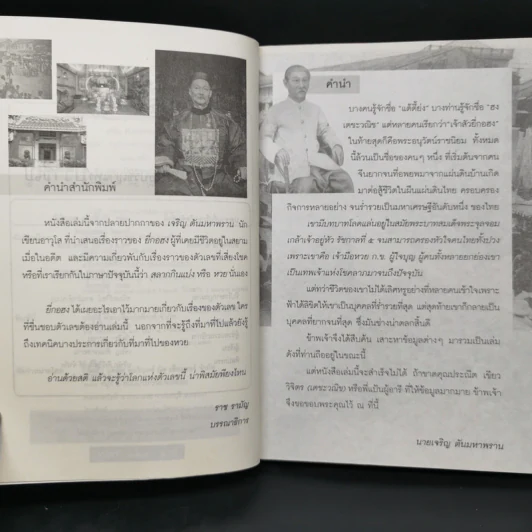 คำนำสำนักพิมพ์
หนังสือเล่มนี้จากปลายปากกาของ เจริญ ตันมหาพราน นัก
เขียนอาวุโส ที่นำเสนอเรื่องราวของ ยี่กอฮง ผู้ที่เคยมีชีวิตอยู่ในสยาม
เมื่อในอดีต และมีความเกี่ยวพันกับเรื่องราวของตัวเลขที่เสี่ยงโชค
หรือที่เราเรียกกันในภาษาปัจจุบันนี้ว่า สลากกินแบ่ง หรือ หวย นั่นเอง
ยี่กอฮง ได้เผยอะไรเอาไว้มากมายเกี่ยวกับเรื่องของตัวเลข ใคร
ที่ชื่นชอบตัวเลขต้องอ่านเล่มนี้ นอกจากที่จะรู้ถึงที่มาที่ไปแล้วยังรู้
ถึงเทคนิคบางประการเกี่ยวกับที่มาที่ไปของหวย
อ่านด้วยสติ แล้วจะรู้ว่าโลกแห่งตัวเลขนี้ น่าพิสมัยเพียงไหน
ราช รามัญ
บรรณาธิการ
คำนำ
บางคนรู้จักชื่อ "แต้ตี้ย่ง" บางท่านรู้จักชื่อ "ฮง
เตชะวณิช" แต่หลายคนเรียกว่า"เจ้าสัวยี่กอฮง"
ในท้ายสุดก็คือพระอนุวัตน์ราชนิยม ทั้งหมด
นี้ล้วนเป็นชื่อของคนๆ หนึ่ง ที่เริ่มต้นจากคน
จีนยากจนที่อพยพมาจากแผ่นดินบ้านเกิด
มาต่อสู้ชีวิตในผืนแผ่นดินไทย ครอบครอง
กิจการหลายอย่าง จนร่ำรวยเป็นมหาเศรษฐีอันดับหนึ่ง ของไทย
เขามีบทบาทโลดแล่นอยู่ในสมัยพระบาทสมเด็จพระจุลจอม
เกล้าเจ้าอยู่หัว รัชกาลที่ ๕ จนสามารถครองหัวใจคนไทยทั้งปวง
เพราะเขาคือ เจ้ามือหวย ก.ข. ผู้ใจบุญ ผู้คนทั้งหลายยกย่องเขา
เป็นเทพเจ้าแห่งโชคลาภมาจนถึงปัจจุบัน
แต่ทว่าชีวิตของเขาไม่ได้เลิศหรูอย่างที่หลายคนเข้าใจเพราะ
ฟ้าได้ลิขิตให้เขาเป็นบุคคลที่ร่ำรวยที่สุด แต่สุดท้ายเขาก็กลายเป็น
บุคคลที่ยากจนที่สุด ซึ่งมันช่างน่าตลกสิ้นดี
ข้าพเจ้าจึงได้สืบค้น เสาะหาข้อมูลต่างๆ มารวมเป็นเล่ม
ดังที่ท่านถืออยู่ในขณะนี้
แต่หนังสือเล่มนี้จะสำเร็จไม่ได้ ถ้าขาดคุณประณีต เขียว
วิจิตร (เตชะวณิช) หรือพี่แป้นผู้อารี ที่ให้ข้อมูลมากมาย ข้าพเจ้า
จึงขอขอบพระคุณไว้ ณ ที่นี้
นายเจริญ ตันมหาพราน